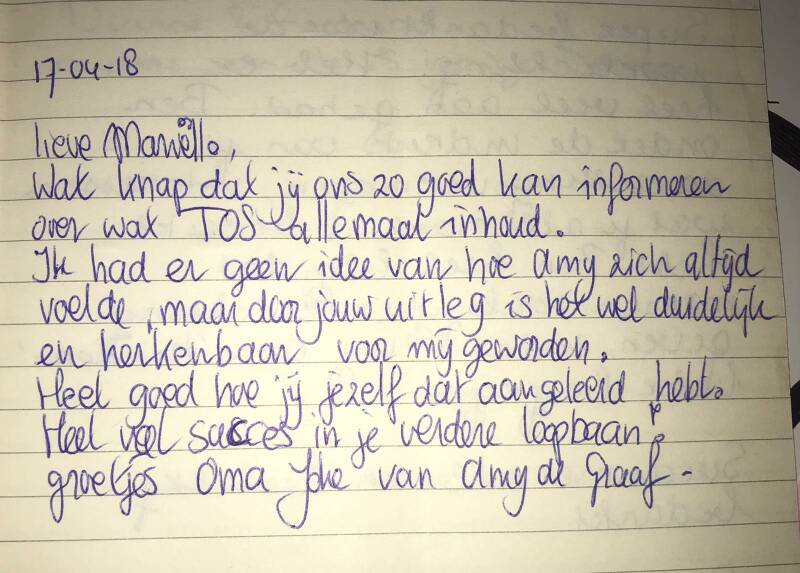 17-04-18
lieve Mariëllo,
Wat knap dat jij ons zo goed kan informeren
over wat TOS allemaal inhoud.
Ik had er geen idee van hoe Amy zich altijd
voelde, maar door jouw uitleg is het wel duidelijk
en herkenbaar voor mij geworden.
Heel goed hoe jij jezelf dat aangeleerd hebt.
Heel veel succes in je verdere loopbaan!
groetjes Oma Joke van Amy de Graaf -